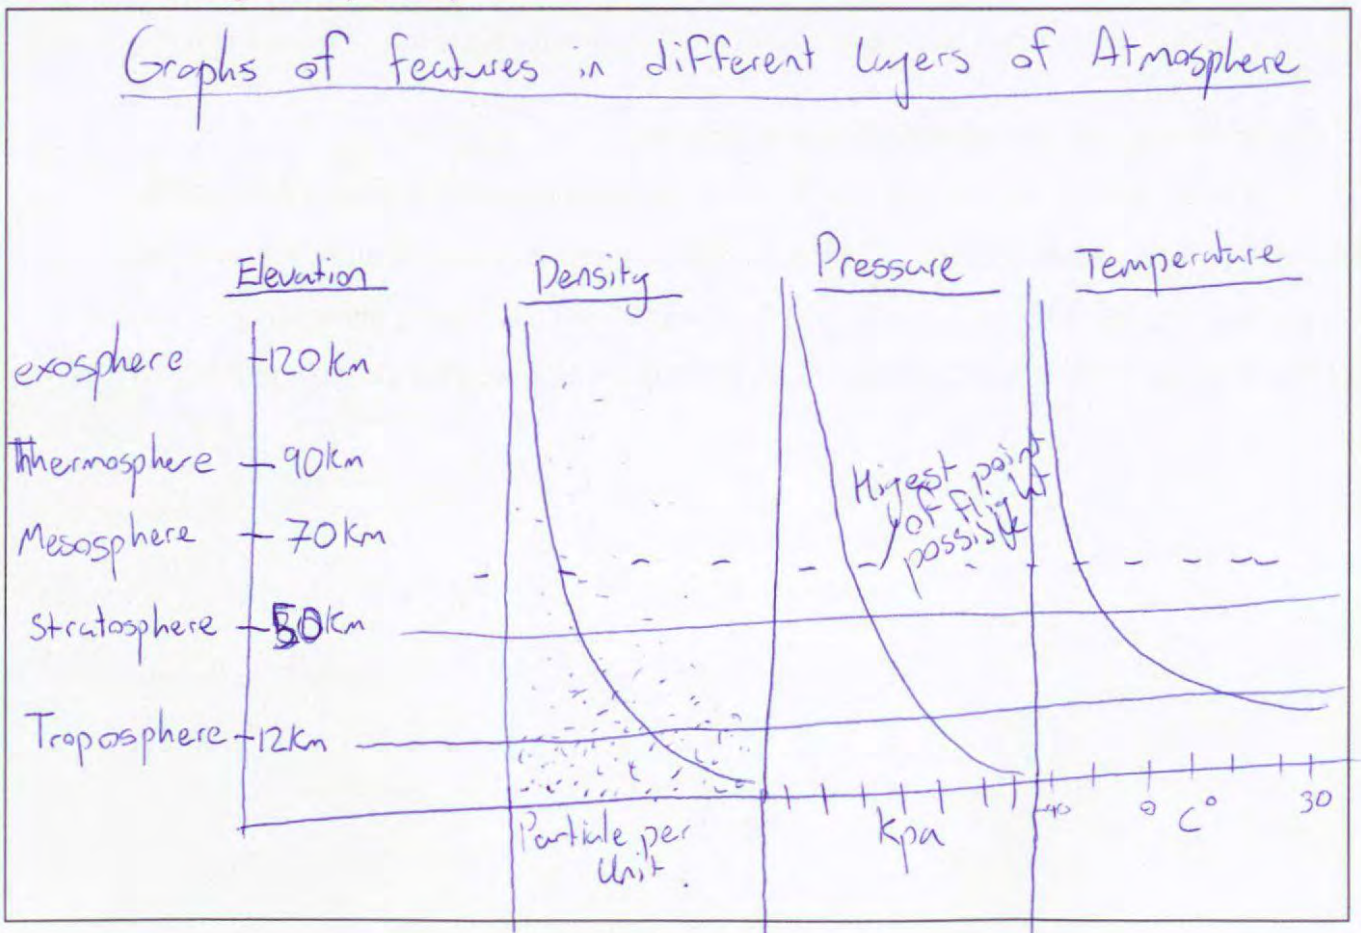 Graphs of features in different layers of Atmosphere
Elevation Density Pressure Temperature
exosphere 120 km
Thermosphere 90 km
Mesosphere 70 km
Stratosphere 50 km
Troposphere 12 km
Higest point
of flight
possible
Particle per
Unit.
Kpa
-40 0 30
C°